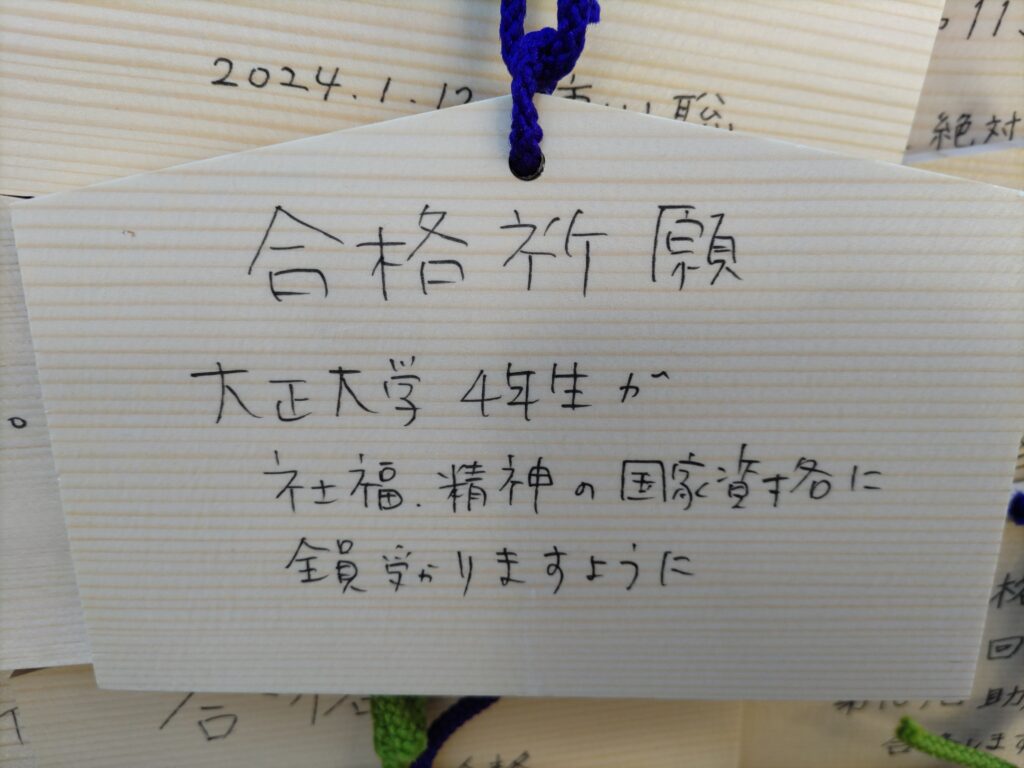 2024.1.12
聡
絶対
合格祈願
大正大学 4年生が
社福.精神の国家資格に
全員受かりますように
格
回
助
合格
合格